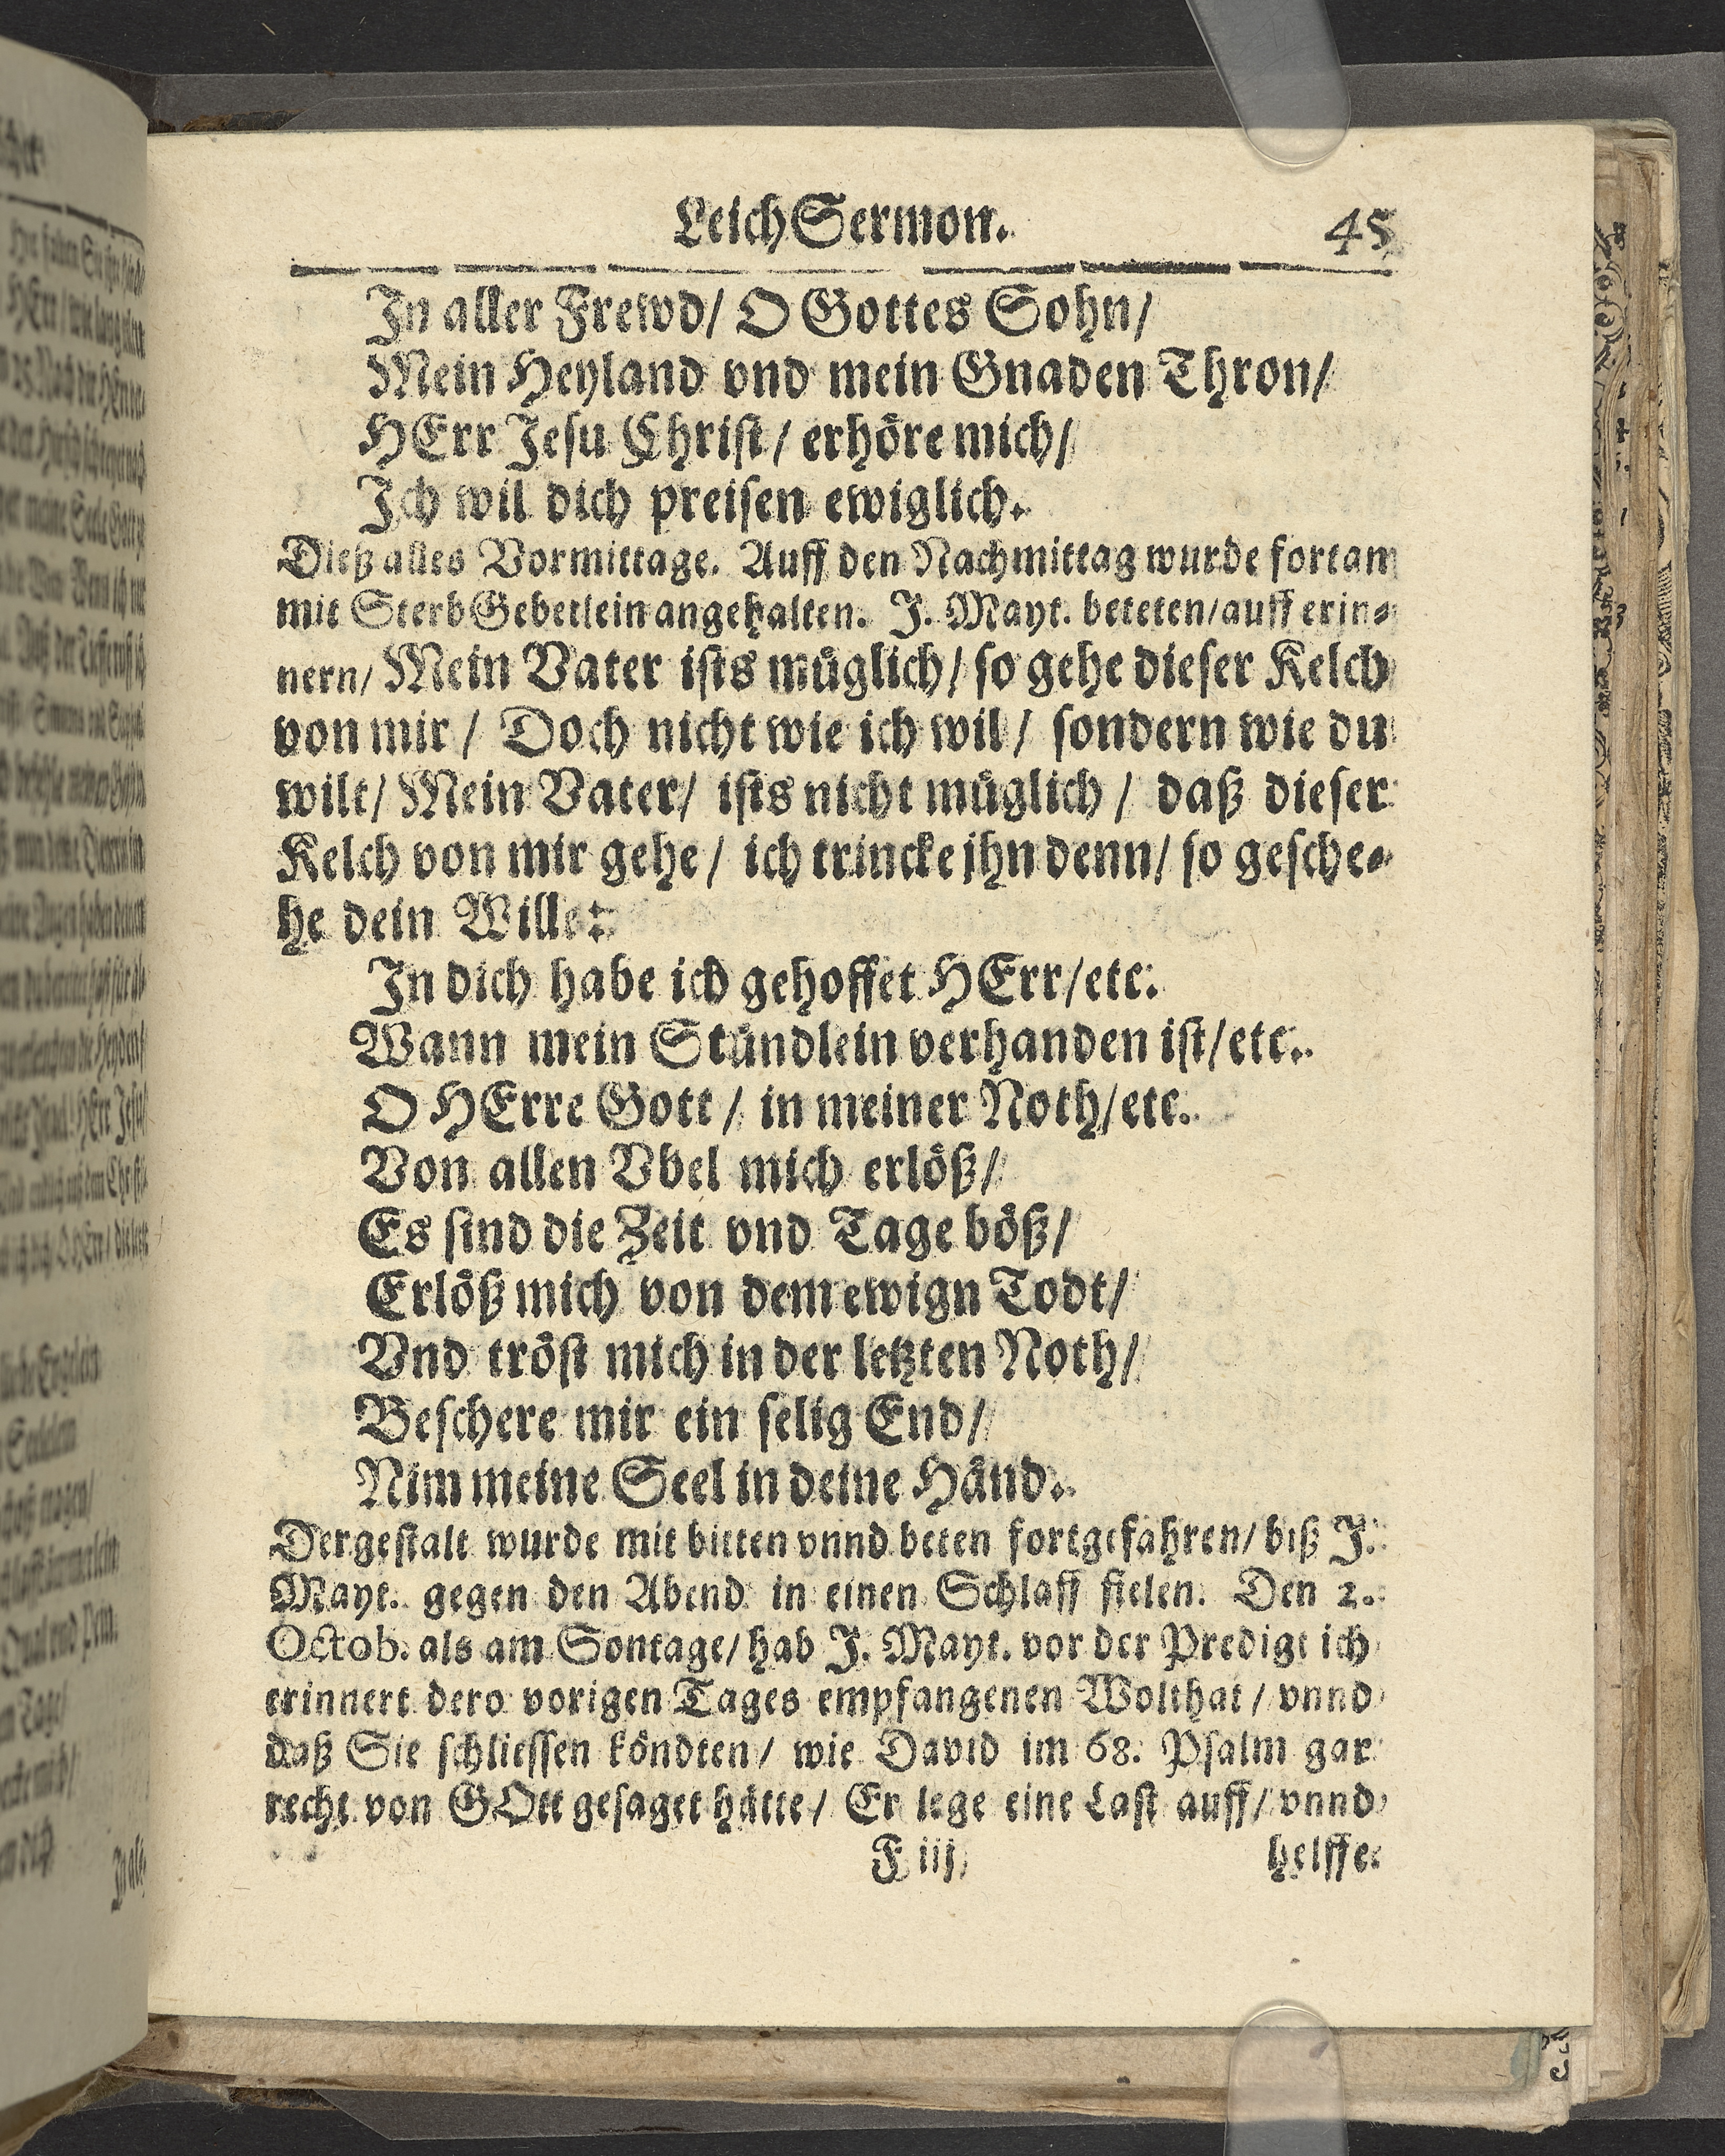 LeichSermon. 45
In aller Frewd/ O Gottes Sohn/
Mein Heyland vnd mein Gnaden Thron/
HErr Jesu Christ/ erhöre mich/
Ich wil dich preisen ewiglich.
Dieß alles Vormittage. Auff den Nachmittag wurde fortan
mit SterbGebetlein angehalten. J. Mayt. beteten/ auff erin⸗
nern/ Mein Vater ists müglich/ so gehe dieser Kelch
von mir/ Doch nicht wie ich wil/ sondern wie du
wilt/ Mein Vater/ ists nicht müglich/ daß dieser
Kelch von mir gehe/ ich trincke jhn denn/ so gesche⸗
he dein Wille:
In dich habe ich gehoffet HErr/etc.
Wann mein Stündlein verhanden ist/etc.
O HErre Gott/ in meiner Noth/etc.
Von allen Vbel mich erlöß/
Es sind die Zeit vnd Tage böß/
Erlöß mich von dem ewign Todt/
Vnd tröst mich in der letzten Noth/
Beschere mir ein selig End/
Nim meine Seel in deine Händ.
Dergestalt wurde mit bitten vnnd beten fortgefahren/ biß J.
Mayt. gegen den Abend in einen Schlaff fielen. Den 2.
Octob. als am Sontage/ hab J. Mayt. vor der Predigt ich
erinnert dero vorigen Tages empfangenen Wolthat/ vnnd
daß Sie schliessen köndten/ wie David im 68. Psalm gar
recht von GOtt gesaget hätte/ Er lege eine Last auff/ vnnd
F iij helffe